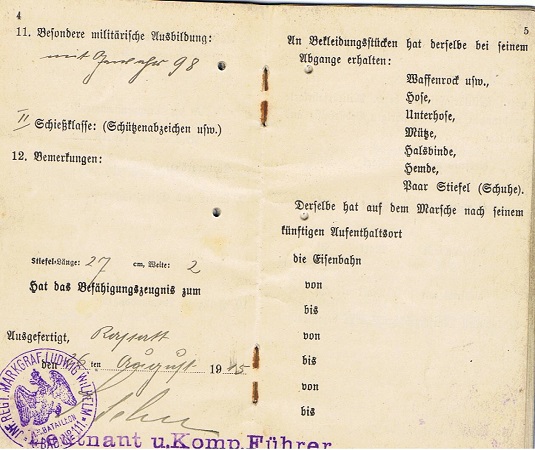 4
11. Besondere militärische Ausbildung:
mit Gewehr 98
II Schießklasse: (Schützenabzeichen usw.)
12. Bemerkungen:
Stiefel-Länge: 27 cm, Weite: 2
Hat das Befähigungszeugnis zum
Ausgefertigt, Rastatt
den 26 ten August 1915
INF. REGT. MARKGRAF LUDWIG WILHELM
BATAILLON
BAD. Nº 111
Leutnant u. Komp. Führer
5
An Bekleidungsstücken hat derselbe bei seinem
Abgange erhalten:
Waffenrock usw.,
Hose,
Unterhose,
Mütze,
Halsbinde,
Hemde,
Paar Stiefel (Schuhe).
Derselbe hat auf dem Marsche nach seinem
künftigen Aufenthaltsort
die Eisenbahn
von
bis
von
bis
von
bis